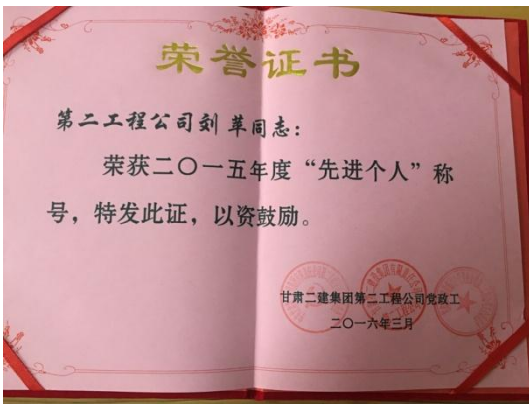 荣誉证书
第二工程公司刘苹同志：
荣获二〇一五年度“先进个人”称
号，特发此证，以资鼓励。
甘肃二建集团第二工程公司党政工
二〇一六年三月